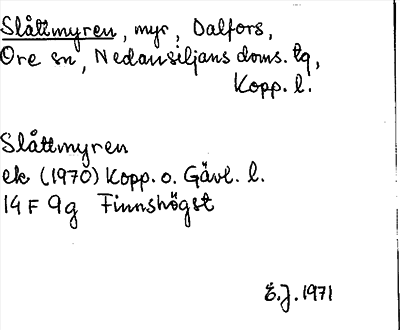 Slåttmyren, myr, Dalfors,
Ore sn, Nedansiljans doms. tg,
Kopp. l.
Slåttmyren
ek (1970) Kopp. o. Gävl. l.
14 F 9g Finnshögst
E.J. 1971